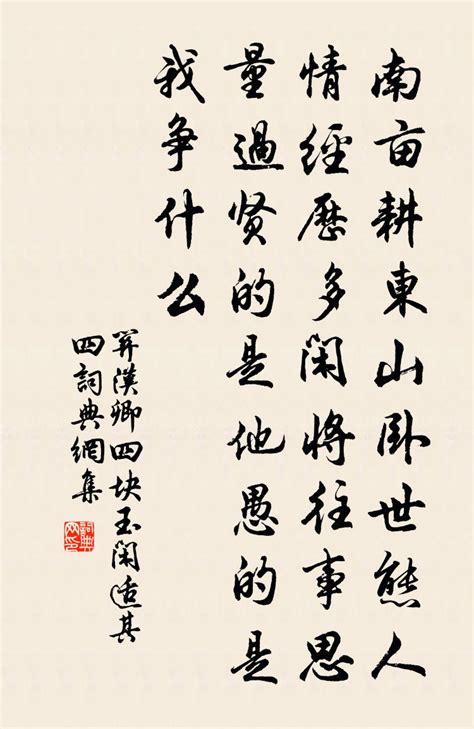 南亩耕東山卧世態人
情經歷多闲將往事思
量過贤的是他愚的是
我争什么
關漢卿四块玉闲适其
四詞典網集